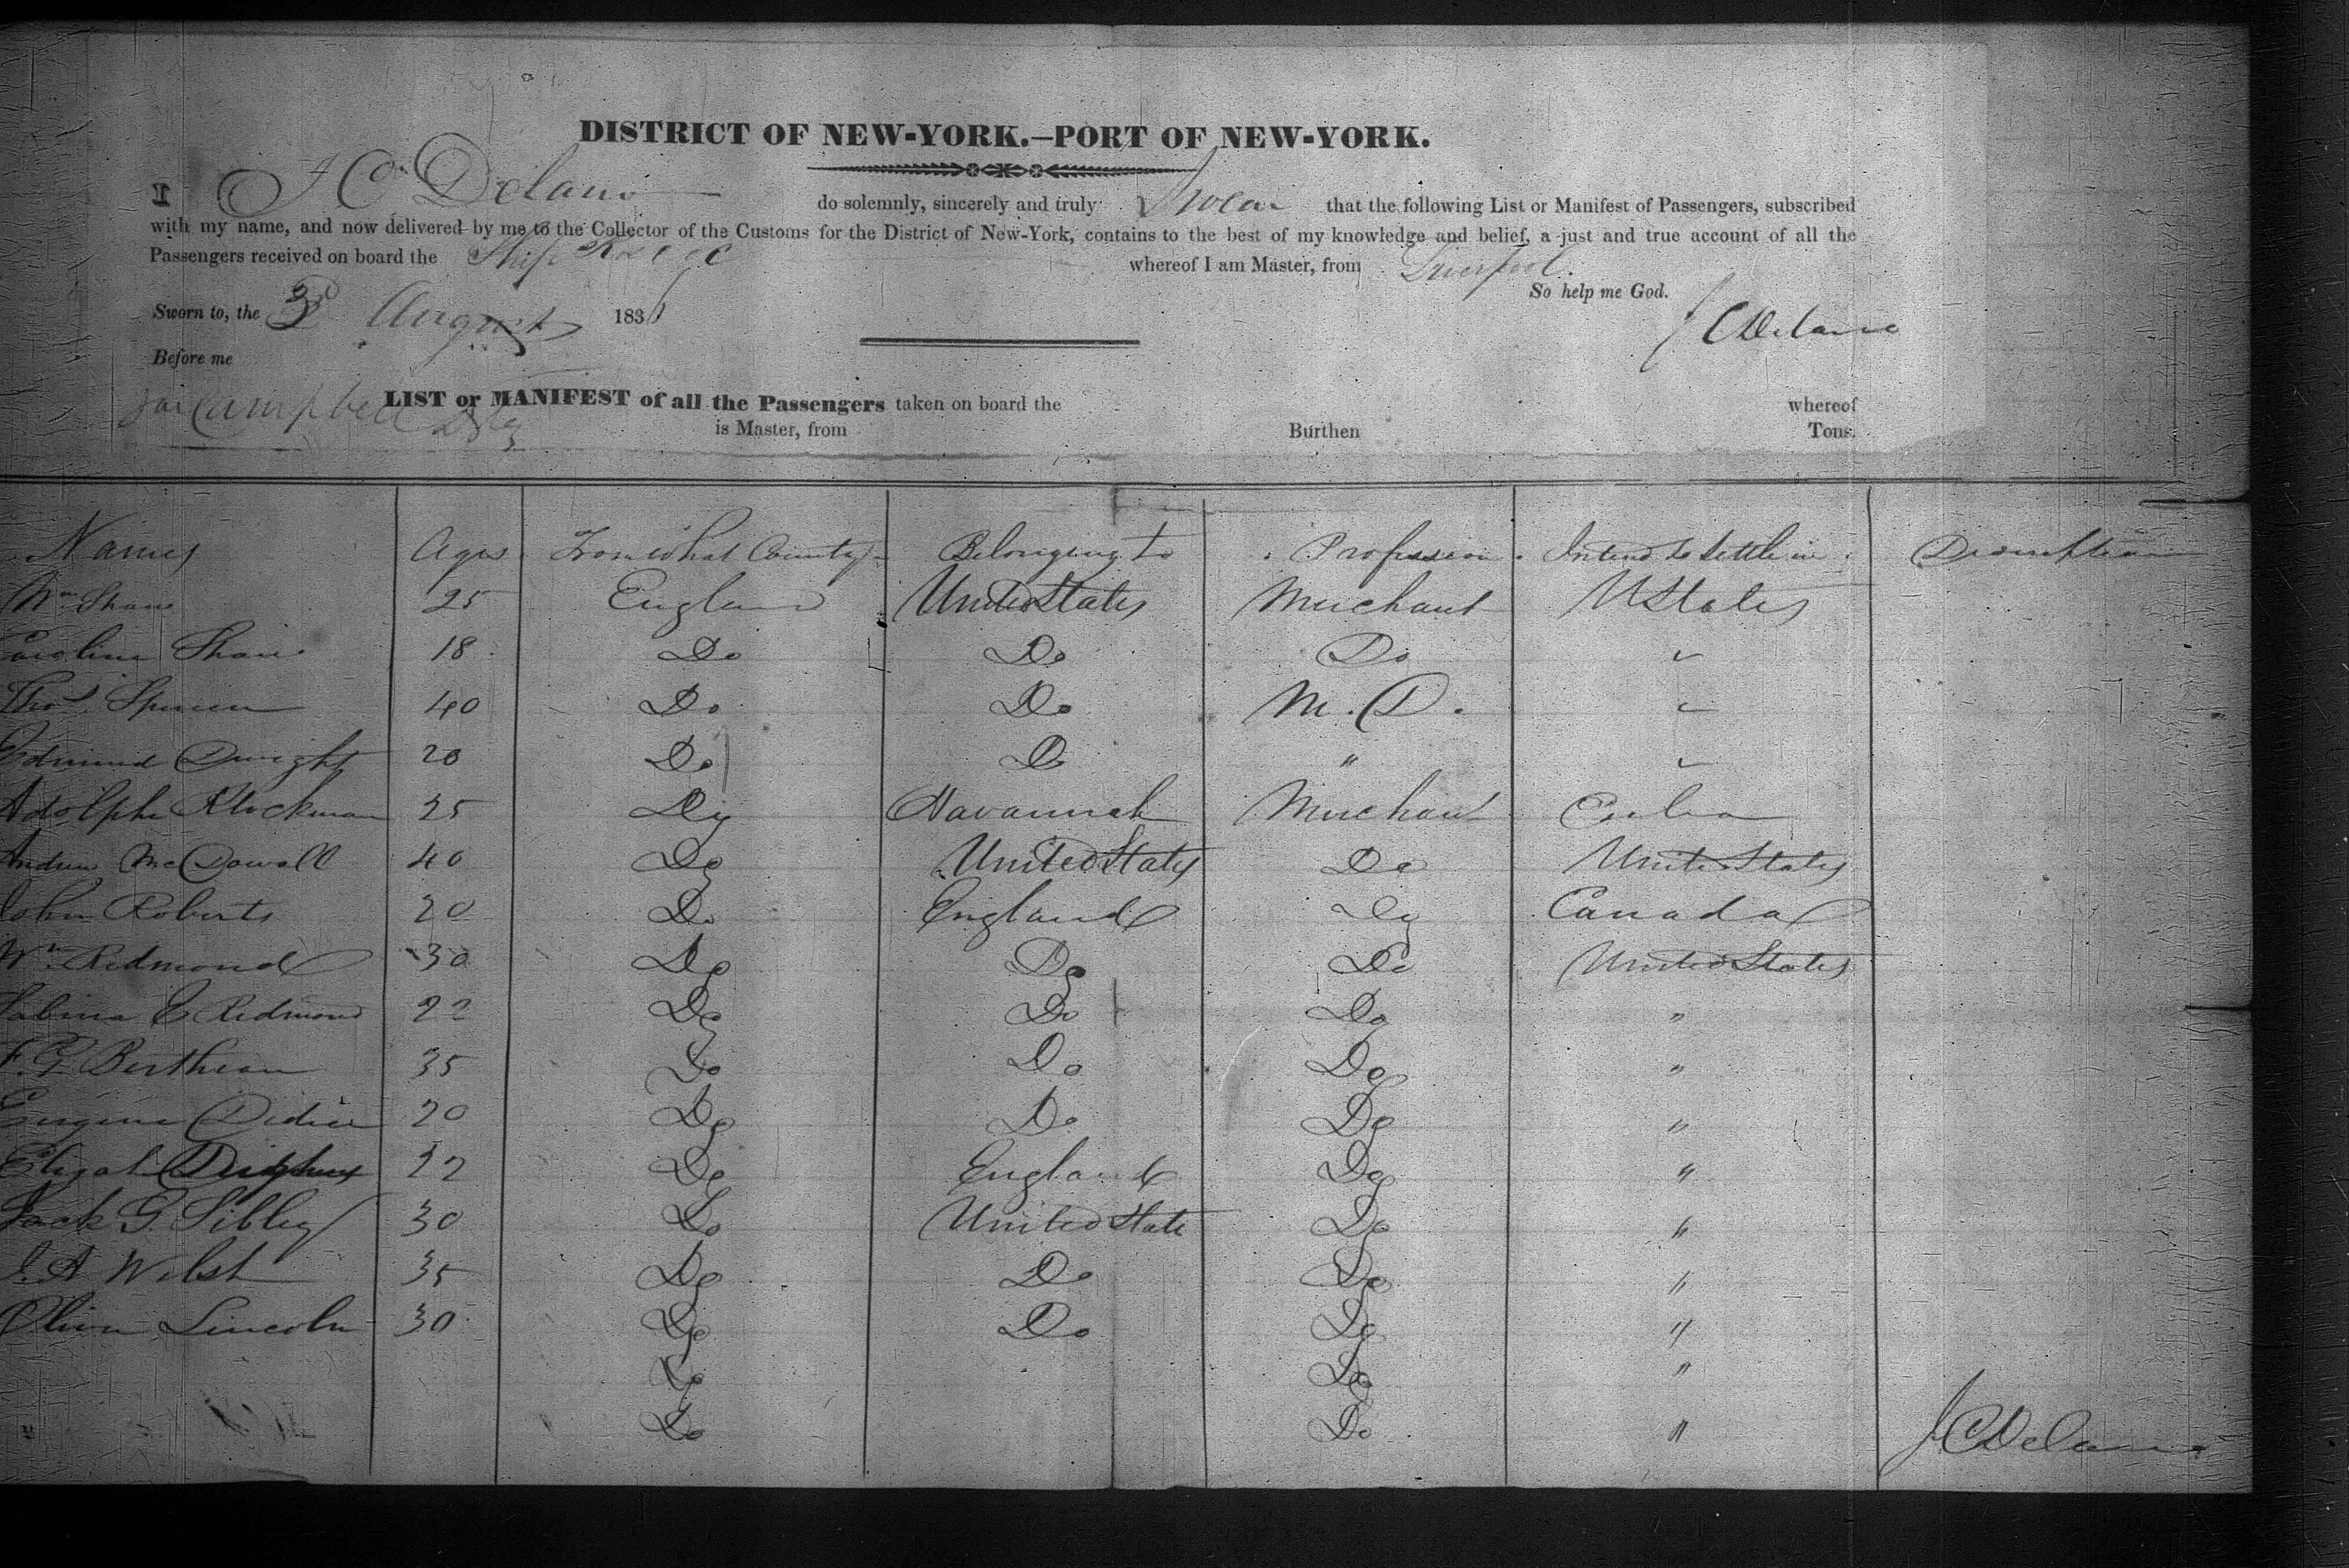 DISTRICT OF NEW-YORK.—PORT OF NEW-YORK.
I J C Delano do solemnly, sincerely and truly Swear that the following List or Manifest of Passengers, subscribed
with my name, and now delivered by me to the Collector of the Customs for the District of New-York, contains to the best of my knowledge and belief, a just and true account of all the
Passengers received on board the Ship Roscoe whereof I am Master, from Liverpool
So help me God.
Sworn to, the 3d August 183
J C Delano
Before me
Campbell
LIST or MANIFEST of all the Passengers taken on board the whereof
is Master, from Burthen Tons.
Names Ages From what County Belonging to Profession Intend to Settle in Description
Wm Shaw 25 England United States Merchant U States
Caroline Shaw 18 Do Do Do "
Thos Spencer 40 Do Do M. D. "
Edmund Dwight 20 Do Do " "
Adolphe Klockman 25 Do Havannah Merchant Cuba
Andrew McDowall 40 Do United States Do United States
John Roberts 20 Do England Do Canada
Wm Redmond 30 Do Do Do United States
Sabina E Redmond 22 Do Do Do "
F. G. Bertheau 35 Do Do Do "
Eugene Didier 20 Do Do Do "
Elizah 22 Do England Do "
Jack G. Sibley 30 Do United State Do "
J. A Welsh 35 Do Do Do "
Oliver Lincoln 30 Do Do Do "
Do Do "
Do Do "
J C Delano